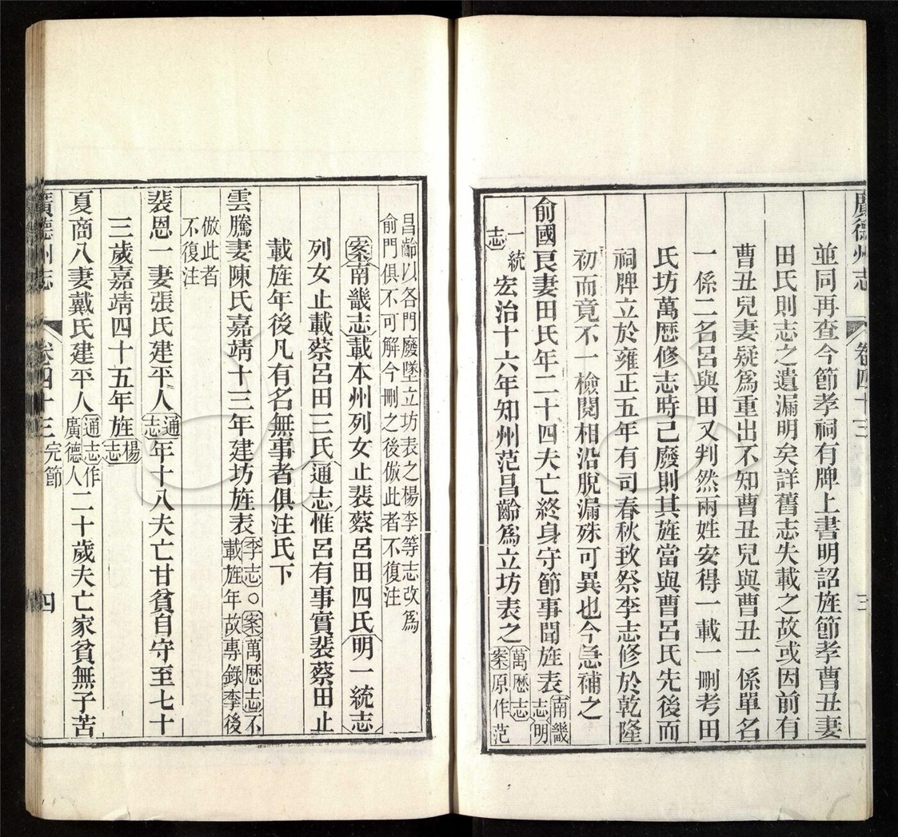 廣德州志 卷四十三 三
並同再查今節孝祠有牌上書明詔旌節孝曹丑妻
田氏則志之遺漏明矣詳舊志失載之故或因前有
曹丑兒妻疑爲重出不知曹丑兒與曹丑一係單名
一係二名呂與田又判然兩姓安得一載一刪考田
氏坊萬歷修志時已廢則其旌當與曹呂氏先後而
祠牌立於雍正五年有司春秋致祭李志修於乾隆
初而竟不一檢閱相沿脫漏殊可異也今急補之
俞國良妻田氏年二十四夫亡終身守節事聞旌表南畿志明
一統志宏治十六年知州范昌齡爲立坊表之萬歷志案原作范
昌齡以各門廢墜立坊表之楊李等志改爲
俞門俱不可解今刪之後倣此者不復注
案南畿志載本州列女止裴蔡呂田四氏明一統志
列女止載蔡呂田三氏通志惟呂有事實裴蔡田止
載旌年後凡有名無事者俱注氏下
雲騰妻陳氏嘉靖十三年建坊旌表李志○案萬歷志不載旌年故專錄李後
倣此者不復注
裴恩一妻張氏建平人通志年十八夫亡甘貧自守至七十
三歲嘉靖四十五年旌楊志
夏商八妻戴氏建平人通志作廣德人二十歲夫亡家貧無子苦
廣德州志 卷四十三 完節 四